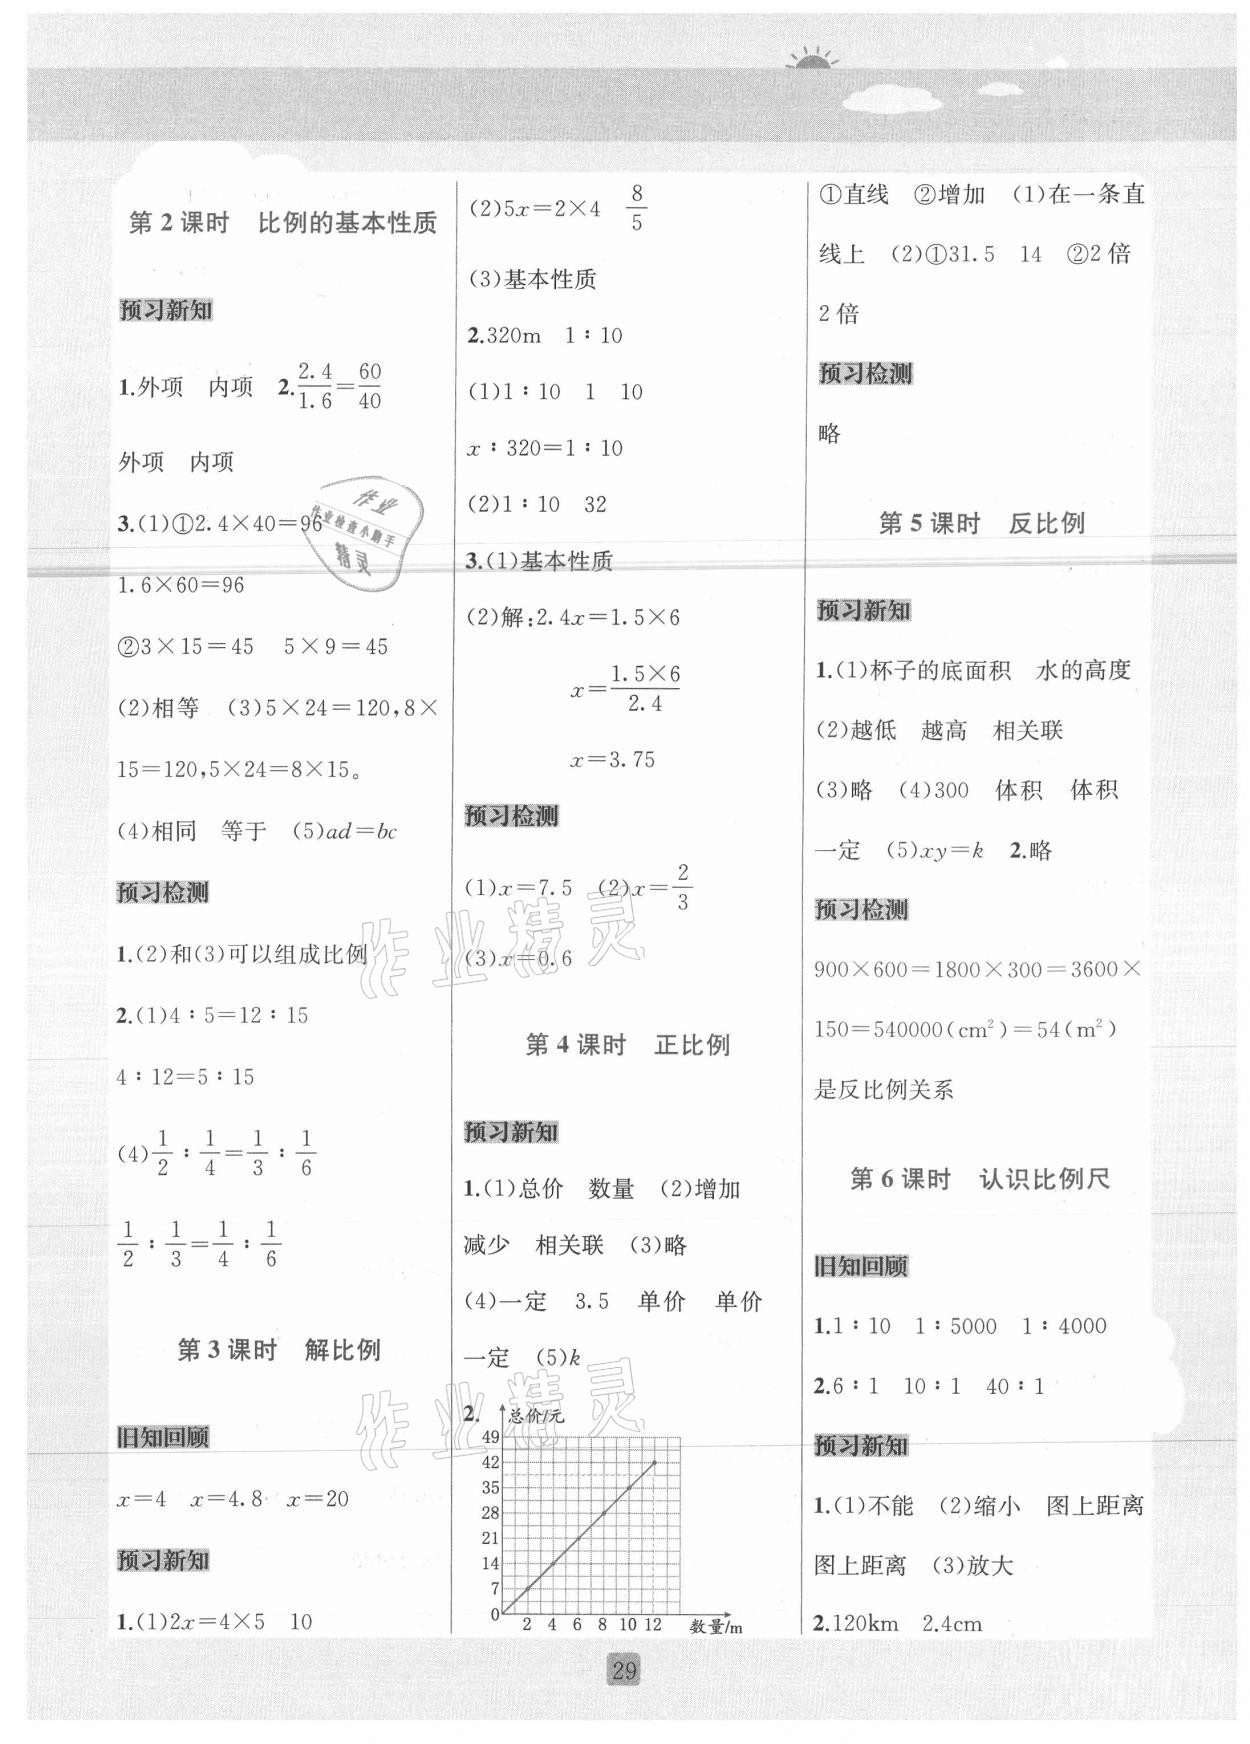 第2课时　比例的基本性质
预习新知
1.外项　内项　2.2.4/1.6=60/40
外项　内项
3.(1)①2.4×40=96
1.6×60=96
②3×15=45　5×9=45
(2)相等　(3)5×24=120,8×
15=120,5×24=8×15。
(4)相同　等于　(5)ad=bc
预习检测
1.(2)和(3)可以组成比例
2.(1)4∶5=12∶15
4∶12=5∶15
(4)1/2∶1/4=1/3∶1/6
1/2∶1/3=1/4∶1/6
第3课时　解比例
旧知回顾
x=4　x=4.8　x=20
预习新知
1.(1)2x=4×5　10
(2)5x=2×4　8/5
(3)基本性质
2.320m　1∶10
(1)1∶10　1　10
x∶320=1∶10
(2)1∶10　32
3.(1)基本性质
(2)解:2.4x=1.5×6
x=1.5×6/2.4
x=3.75
预习检测
(1)x=7.5　(2)x=2/3
(3)x=0.6
第4课时　正比例
预习新知
1.(1)总价　数量　(2)增加
减少　相关联　(3)略
(4)一定　3.5　单价　单价
一定　(5)k
2.
总价/元
49
42
35
28
21
14
7
0
2 4 6 8 10 12　数量/m
①直线　②增加　(1)在一条直
线上　(2)①31.5　14　②2倍
2倍
预习检测
略
第5课时　反比例
预习新知
1.(1)杯子的底面积　水的高度
(2)越低　越高　相关联
(3)略　(4)300　体积　体积
一定　(5)xy=k　2.略
预习检测
900×600=1800×300=3600×
150=540000(cm²)=54(m²)
是反比例关系
第6课时　认识比例尺
旧知回顾
1.1∶10　1∶5000　1∶4000
2.6∶1　10∶1　40∶1
预习新知
1.(1)不能　(2)缩小　图上距离
图上距离　(3)放大
2.120km　2.4cm
29
作业
作业检查小助手
精灵
作业精灵
作业精灵